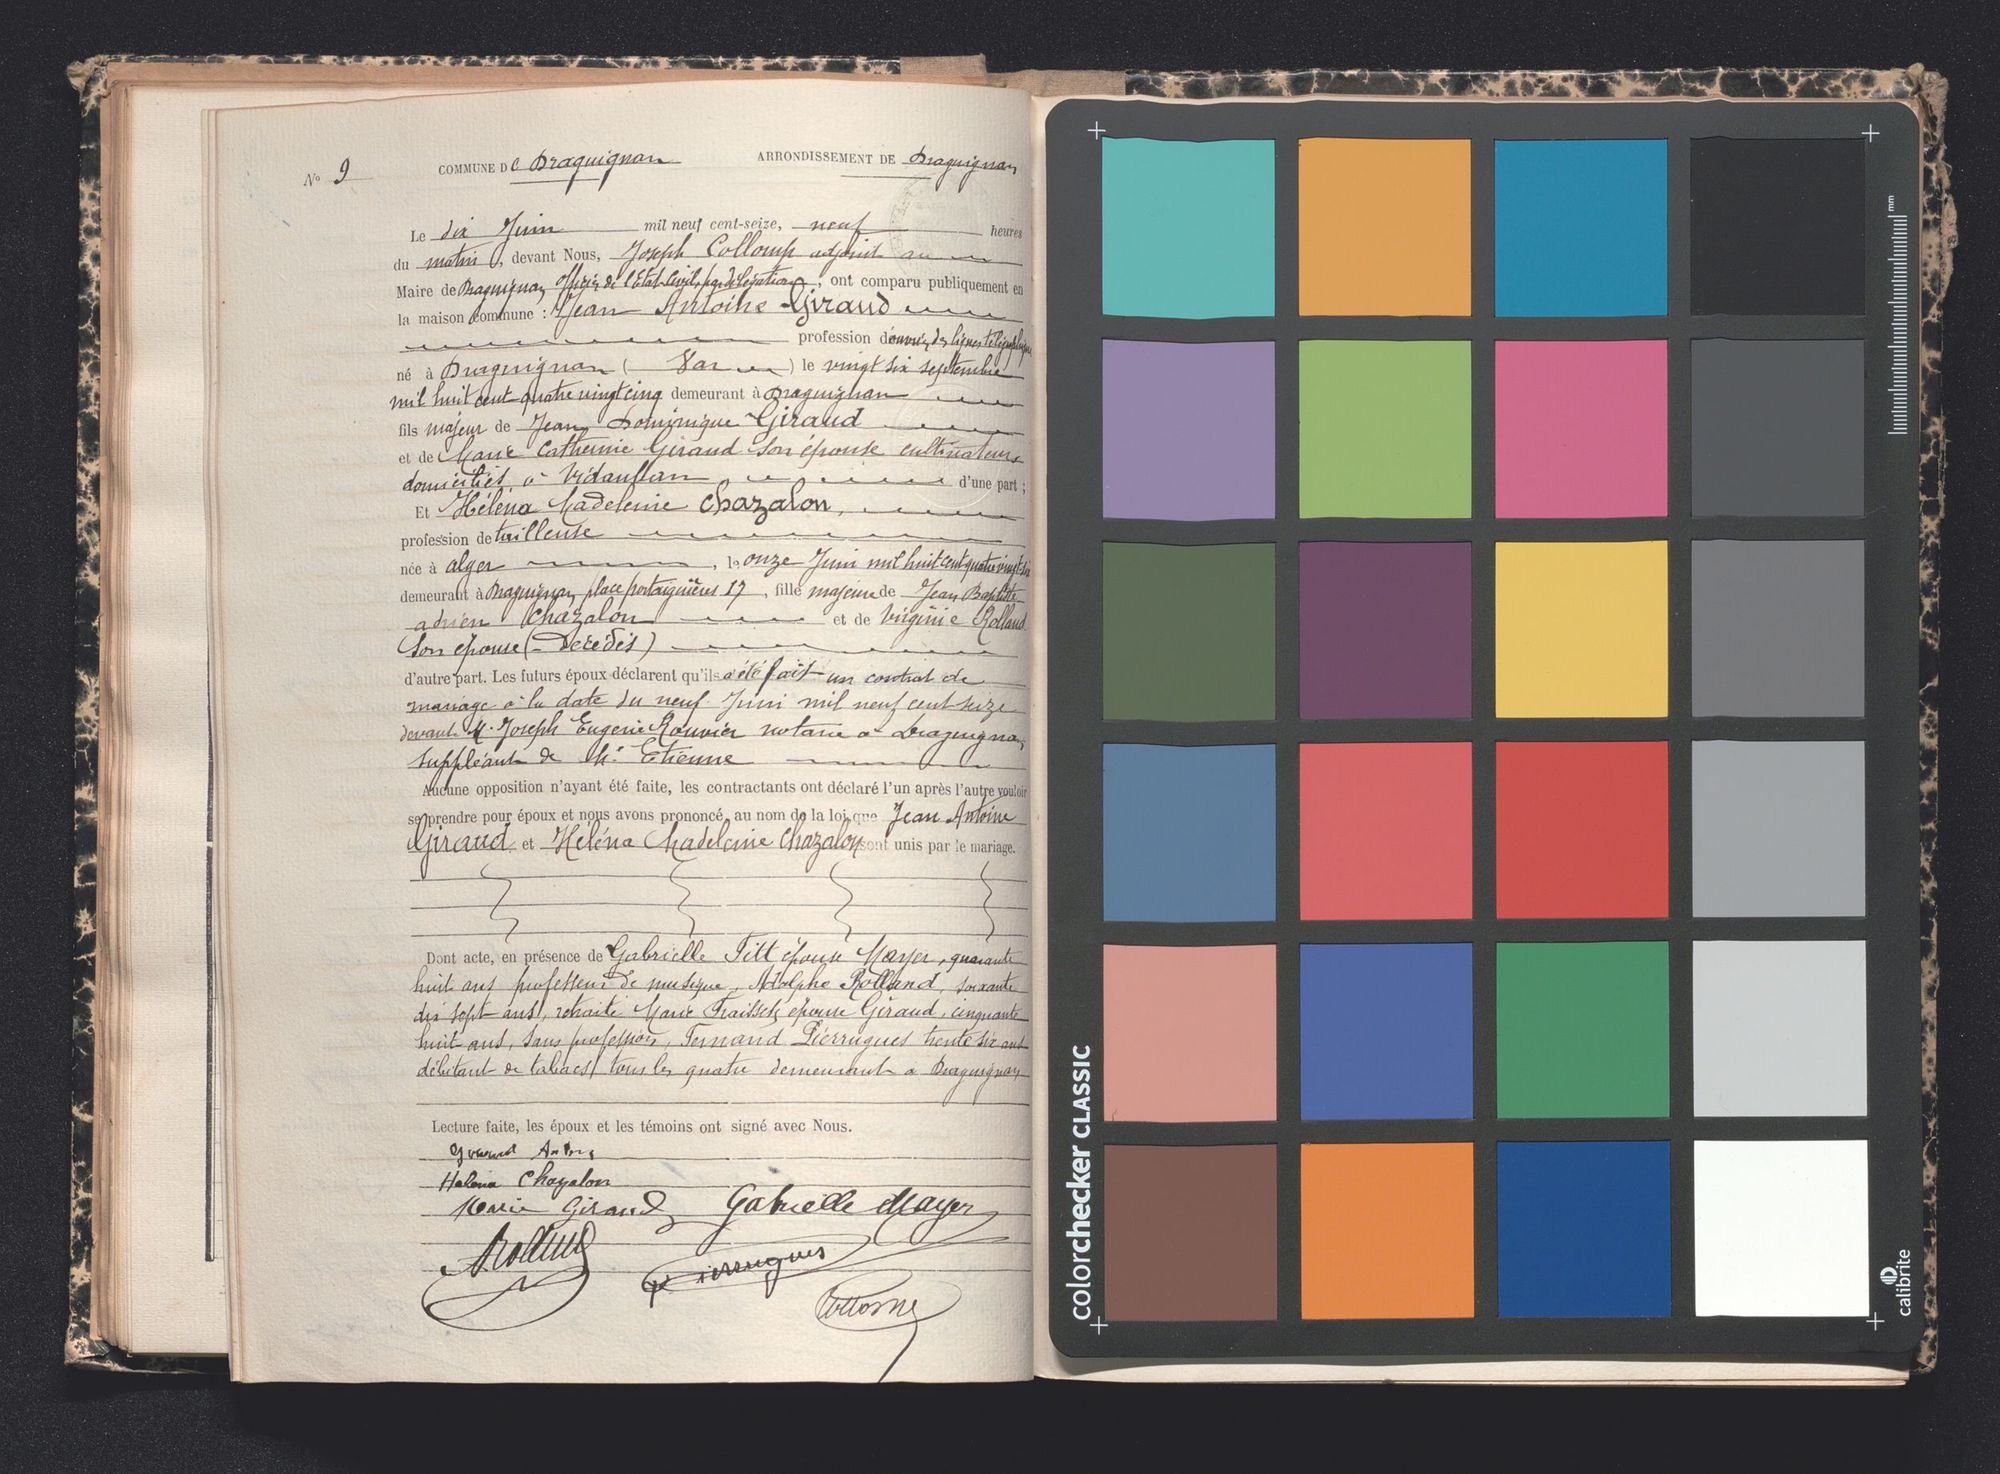 N° 9 COMMUNE De Draguignan ARRONDISSEMENT DE Draguignan
Le dix Juin mil neuf cent-seize, neuf heures
du matin, devant Nous, Joseph Collomp adjoint au
Maire de Draguignan Officier de l'Etat-Civil, par délégation, ont comparu publiquement en
la maison commune : Jean Antoine Giraud
profession d'ouvrier des lignes télégraphiques
né à Draguignan ( Var ) le vingt six septembre
mil huit cent quatre vingt cinq demeurant à Draguignan
fils majeur de Jean Dominique Giraud
et de Marie Catherine Giraud son épouse cultivateurs
domiciliés à Vidauban d'une part ;
Et Héléna Madeleine Chazalon,
profession de tailleuse
née à alger, le onze Juin mil huit cent quatre vingt six
demeurant à Draguignan place portaiguières 17, fille majeure de Jean Baptiste
adrien Chazalon et de Virginie Rolland
Son épouse (- Décédés)
d'autre part. Les futurs époux déclarent qu'il a été fait un contrat de
mariage à la date du neuf Juin mil neuf cent seize
devant Me Joseph Eugène Rouvier notaire à Draguignan,
suppléant de Me Etienne
Aucune opposition n'ayant été faite, les contractants ont déclaré l'un après l'autre vouloir
se prendre pour époux et nous avons prononcé, au nom de la loi, que Jean Antoine
Giraud et Héléna Madeleine Chazalon sont unis par le mariage.
Dont acte, en présence de Gabrielle épouse Mayer, quarante
huit ans professeur de musique, Adolphe Rolland, soixante
dix sept ans, retraité Marie épouse Giraud, cinquante
huit ans, sans profession, Fernand Pierrugues trente six ans
débitant de tabacs, tous les quatre demeurant à Draguignan
Lecture faite, les époux et les témoins ont signé avec Nous.
Helena Chazalon
Marie Giraud Gabrielle Mayer
Pierrugues
mm
colorchecker CLASSIC
calibrite